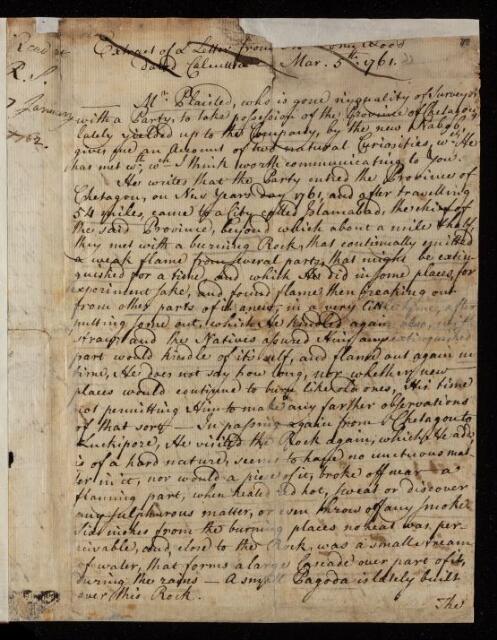 Read at
R. S.
7 January
1762.
Extract of a Letter from
dated Calcutta Mar. 5th. 1761.
Mr. Plaisted, who is gone in quality of Surveyor
with a Party, to take possession of the Province of Chetagon
lately yielded up to the Company, by the new Nabob,
gives me an Amount of two natural Curiosities, wch. He
has met wth. wch. I think worth communicating to You.
He writes that the Party entred the Province of
Chetagon, on New Years day 1761, and after travelling
54 miles, came to a City called Islamabad, the chief of
the said Province, beyond which about a mile & half
they met with a burning Rock, that continually emitted
a weak flame from several parts, that might be extin-
guished for a time, and which He did in some places, for
experiment sake, and found flame then breaking out
from other parts of it anew, in a very little time, after
putting some out, which He kindled again also, with
straw, and the Natives assured Him, any extinguished
part would kindle of its self, and flame out again in
time, He does not say how long, nor whether new
places would continue to burn like old ones, His time
not permitting Him to make any farther observations
of that sort — In passing again from Chetagon to
Luckipore, He visited the Rock again, which, He adds,
is of a hard nature, seems to have no unctuous mat-
ter in it, nor would a piece of it, broke off near a
flaming part, when heated red hot, sweat or discover
any sulphurous matter, or even throw off any smoke
Six inches from the burning places no heat was per-
ceivable, and close to the Rock, was a small stream
of water, that forms a large Cascade over part of it,
during the rains — A small Pagoda is lately built
over this Rock.
The